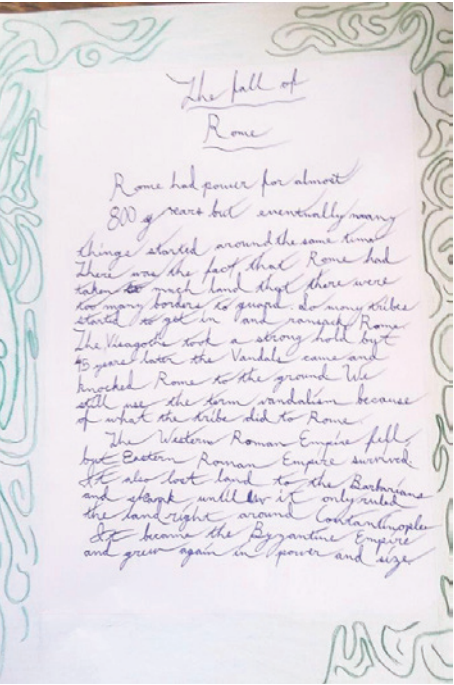 The fall of
Rome
Rome had power for almost
800 years but eventually many
things started around the same time
There was the fact that Rome had
taken so much land that there were
too many borders to guard. So many tribes
started to get in and ransack Rome
The Visagoths took a strong hold but
45 years later the Vandals came and
knocked Rome to the ground We
still use the term vandalism because
of what the tribe did to Rome.
The Western Roman Empire fell,
but Eastern Roman Empire survived.
It also lost land to the Barbarians
and until it only ruled
the land right around Constantinople
It became the Byzantine Empire
and grew again in power and size.